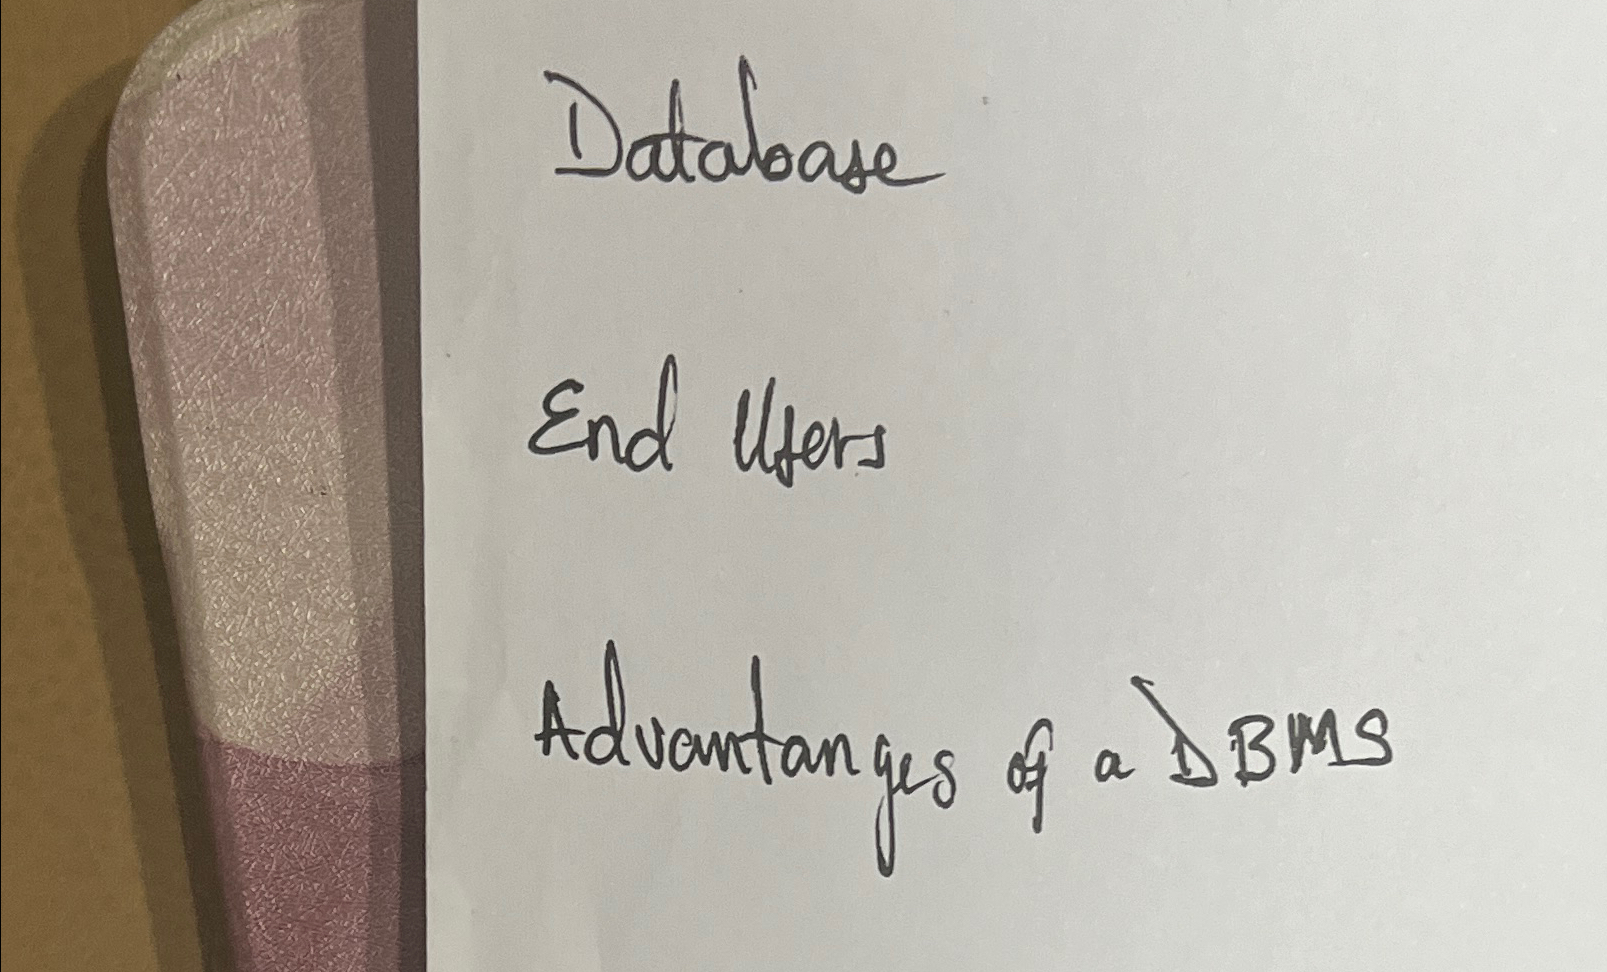 Database
End Users
Advantanges of a DBMS